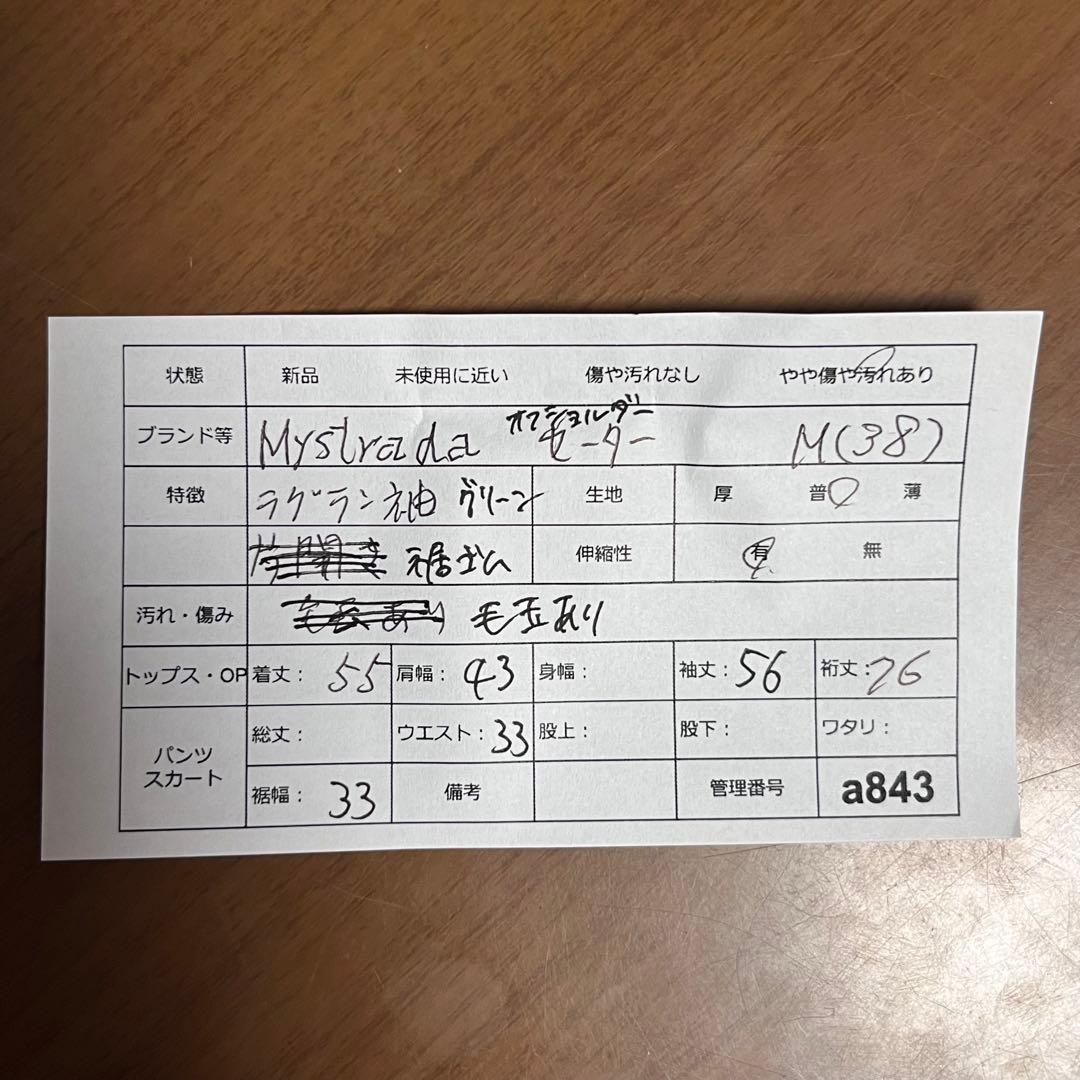 状態 新品 未使用に近い 傷や汚れなし やや傷や汚れあり
ブランド等 Mystrada オフショルダーセーター M(38)
特徴 ラグラン袖 グリーン 生地 厚 普 薄
裾ゴム 伸縮性 有 無
汚れ・傷み 毛玉あり
トップス・OP 着丈: 55 肩幅: 43 身幅: 袖丈: 56 裄丈: 76
パンツ スカート 総丈: ウエスト: 33 股上: 股下: ワタリ:
裾幅: 33 備考 管理番号 a843